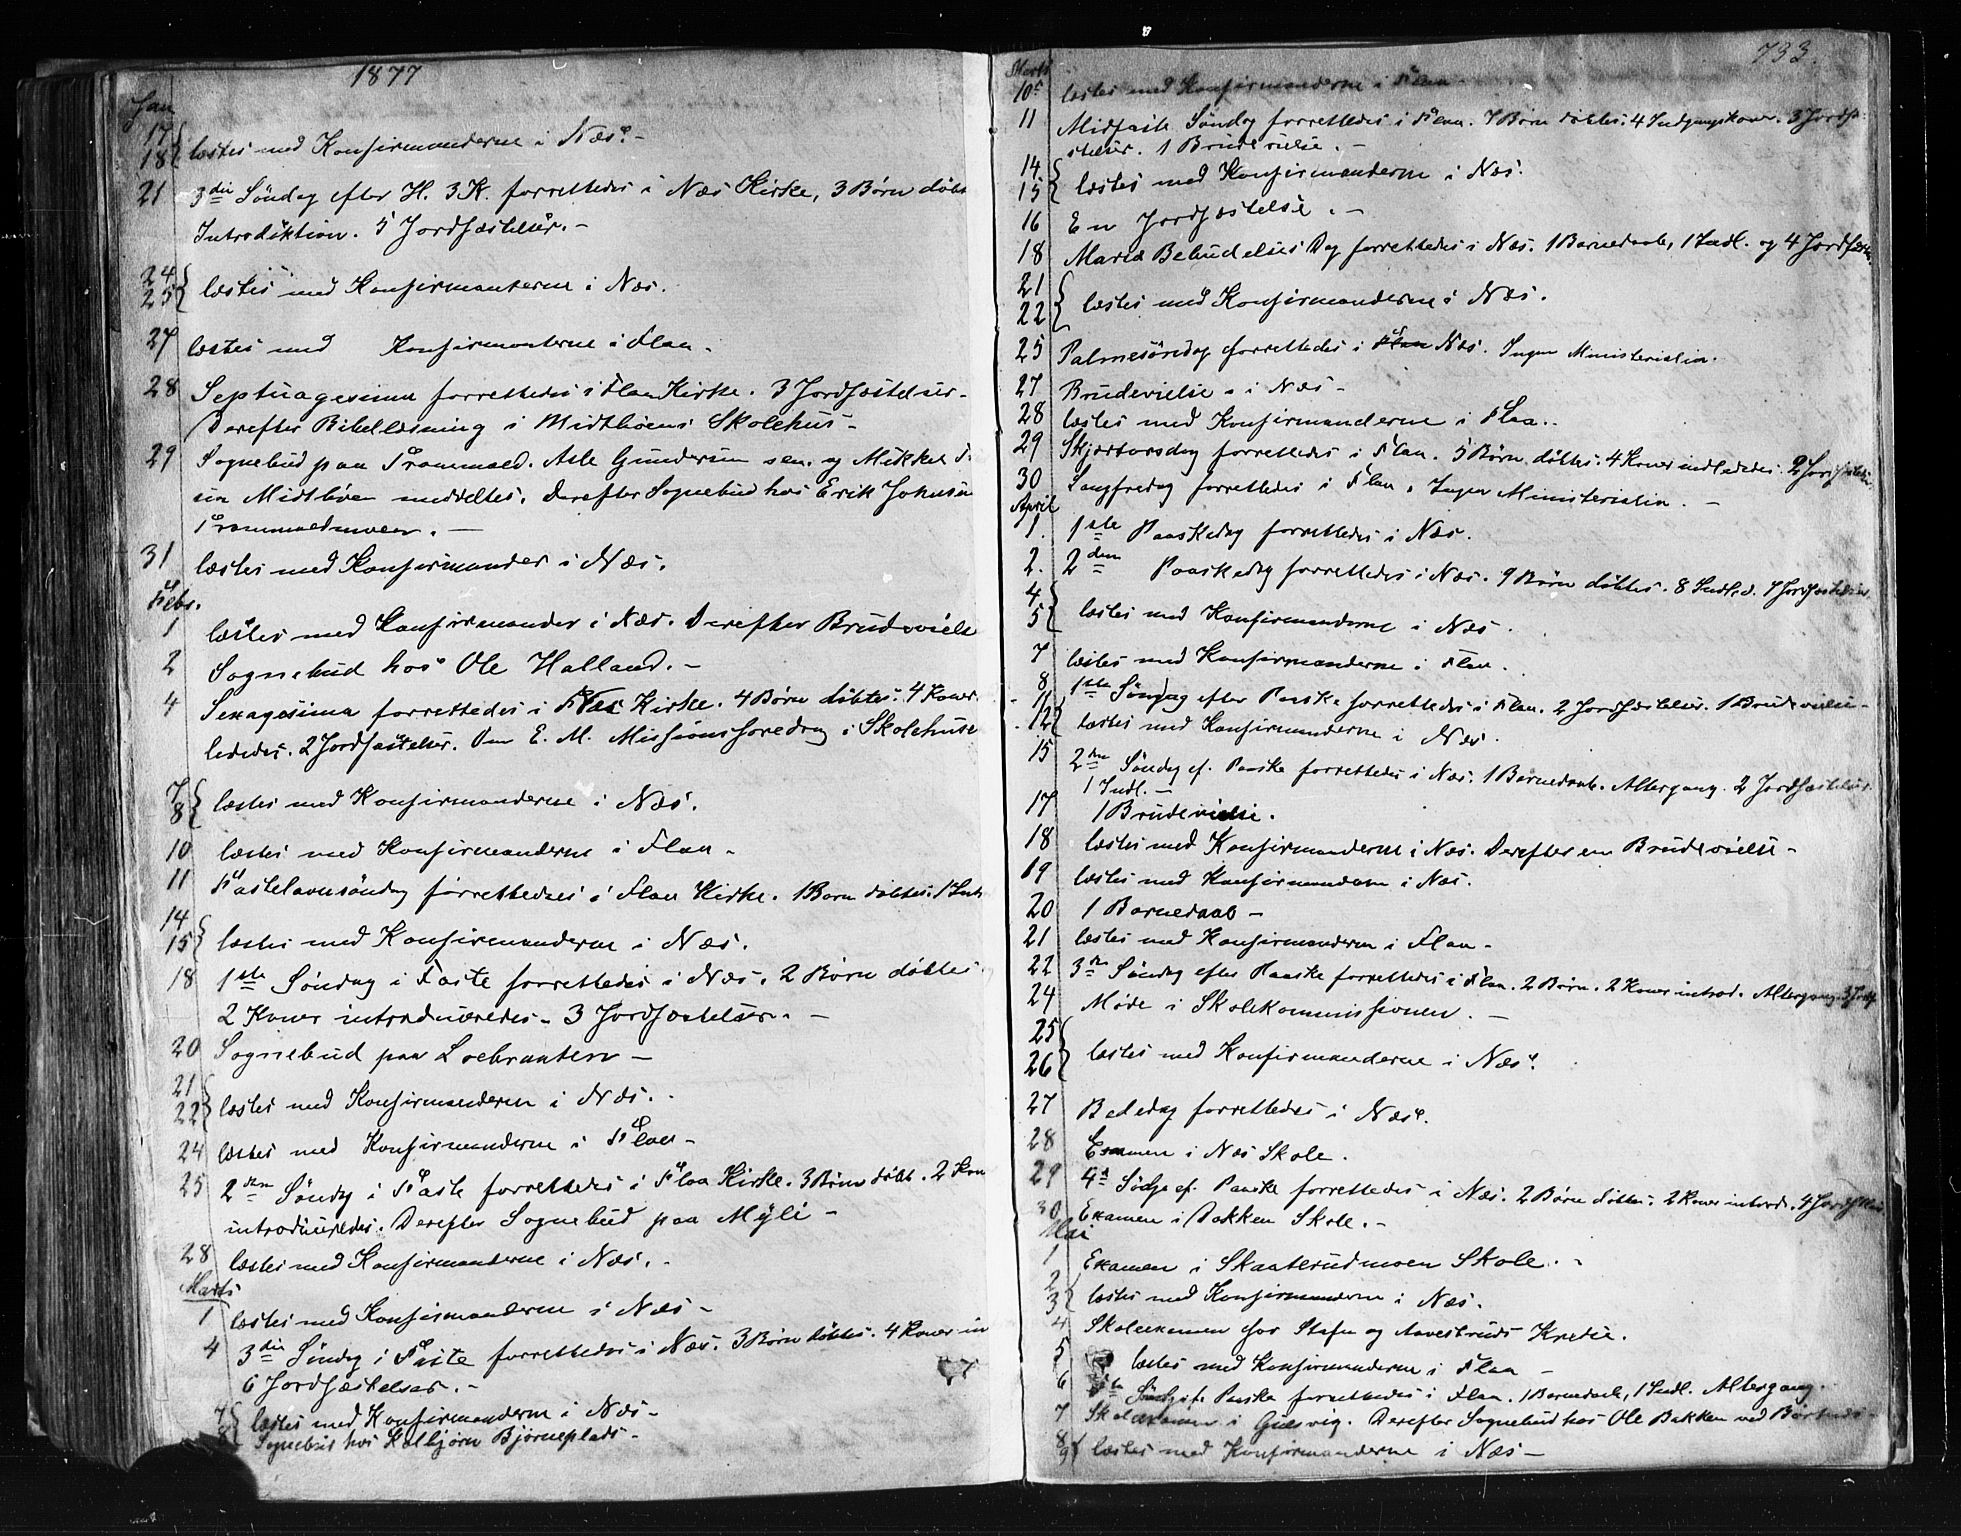 1877
Jan
17
18 læstes med Konfirmanderne i Næs. -
21 3die Søndag efter H. 3 K. forrettedes i Næs Kirke, 3 Børn døbt
Introduktion. 5 Jordfæstelser. -
24
25 læstes med Konfirmanterne i Næs.
27 læstes med Konfirmanterne i Flaa.
28 Septuagesima forrettedes i Flaa Kirke. 3 Jordfæstelser.
Derefter Bibellæsning i Midthöens Skolehus -
29 Sognebud paa Trommald. Asle Gundersen sen. og Mikkel
Midtböen meddeltes. Derefter Sognebud hos Erik Johnsen
Trommaldmoen. -
31 læstes med Konfirmander i Næs.
Febr.
1 læstes med Konfirmander i Næs. Derefter Brudevielse
2 Sognebud hos Ole Halland. -
4 Sexagesima forrettedes i Næs Kirke. 4 Børn døbtes. 4 Koner
lededes. 2 Jordfæstelser. Om E. M. Missionsforedrag i Skolehuse
7
8 læstes med Konfirmanderne i Næs.
10 læstes med Konfirmanderne i Flaa -
11 Fastelavnsöndag forrettedes i Flaa Kirke. 1 Barn döbtes. 1 Indl
14
15 læstes med Konfirmanderne i Næs.
18 1ste Søndag i Faste forrettedes i Næs. 2 Børn døbtes.
2 Koner introduceredes. 3 Jordfæstelser. -
20 Sognebud paa Loebraaten -
21
22 læstes med Konfirmanderne i Næs.
24 læstes med Konfirmanderne i Flaa -
25 2den Søndag i Faste forrettedes i Flaa Kirke. 3 Børn døbt. 2 Kon
introduceredes. Derefter Sognebud paa Myli -
28 læstes med Konfirmanderne i Næs.
Marts
1 læstes med Konfirmanderne i Næs -
4 3die Søndag i Faste forrettedes i Næs. 3 Børn döbtes. 4 Koner in
6 Jordfæstelser. -
7
8 læstes med Konfirmanderne i Næs -
Sognebud hos Kolbjørn Bjørneplads -
733.
Marts
10 læstes med Konfirmanderne i Flaa
11 Midfaste Søndag forrettedes i Flaa. 7 Børn døbtes. 4 Indgangskoner. 3 Jordfæ-
stelser. 1 Brudevielse. -
14
15 læstes med Konfirmanderne i Næs.
16 En Jordfæstelse. -
18 Mariæ Bebudelses Dag forrettedes i Næs. 1 Barnedaab, 1 Indl. og 4 Jordfæst
21
22 læstes med Konfirmanderne i Næs.
25 Palmesöndag forrettedes i Flaa Næs. Ingen Ministerialia.
27 Brudevielse i Næs -
28 læstes med Konfirmanderne i Flaa.
29 Skjærtorsdag forrettedes i Flaa. 5 Børn døbtes. 4 Koner indlededes. 2 Jordfæstelser
30 Langfredag forrettedes i Flaa. Ingen Ministerialia. -
April
1. 1ste Paaskedag forrettedes i Næs.
2. 2den Paaskedag forrettedes i Næs. 9 Børn døbtes. 8 Indled. 7 Jordfæstelser
4
5 læstes med Konfirmanderne i Næs.
7 læstes med Konfirmanderne i Flaa.
8 1ste Søndag efter Paaske forrettedes i Flaa. 2 Jordfæstelser. 1 Brudevielse -
11
12 læstes med Konfirmanderne i Næs.
15 2den Søndag ef. Paaske forrettedes i Næs. 1 Barnedaab. Altergang. 2 Jordfæstelser.
1 Indl. -
17 1 Brudevielse.
18 læstes med Konfirmanderne i Næs. Derefter en Brudevielse -
19 læstes med Konfirmanderne i Næs.
20 1 Barnedaab -
21 læstes med Konfirmanderne i Flaa -
22 3de Søndag efter Paaske forrettedes i Flaa. 2 Børn. 2 Koner introd. Altergang. 3 Jordf
24 Møde i Skolekommissionen. -
25
26 læstes med Konfirmanderne i Næs.
27 Bededag forrettedes i Næs.
28 Examen i Næs Skole.
29 4de Söndg ef. Paaske forrettedes i Næs. 2 Børn døbtes. 2 Koner introd. 4 Jordfstels
30 Examen i Bakken Skole. -
Mai
1 Examen i Skaaterudmoen Skole. -
2
3 læstes med Konfirmanderne i Næs.
4 Skoleexamen for Stafn og Aavestruds Kredse.
5 læstes med Konfirmanderne i Flaa -
6 5te Söndg ef. Paaske forrettedes i Flaa. 1 Barnedaab, 1 Indl. Altergang.
7 Skoleexamen i Gulsvig. Derefter Sognebud hos Ole Bakken ved
8
9 læstes med Konfirmanderne i Næs -